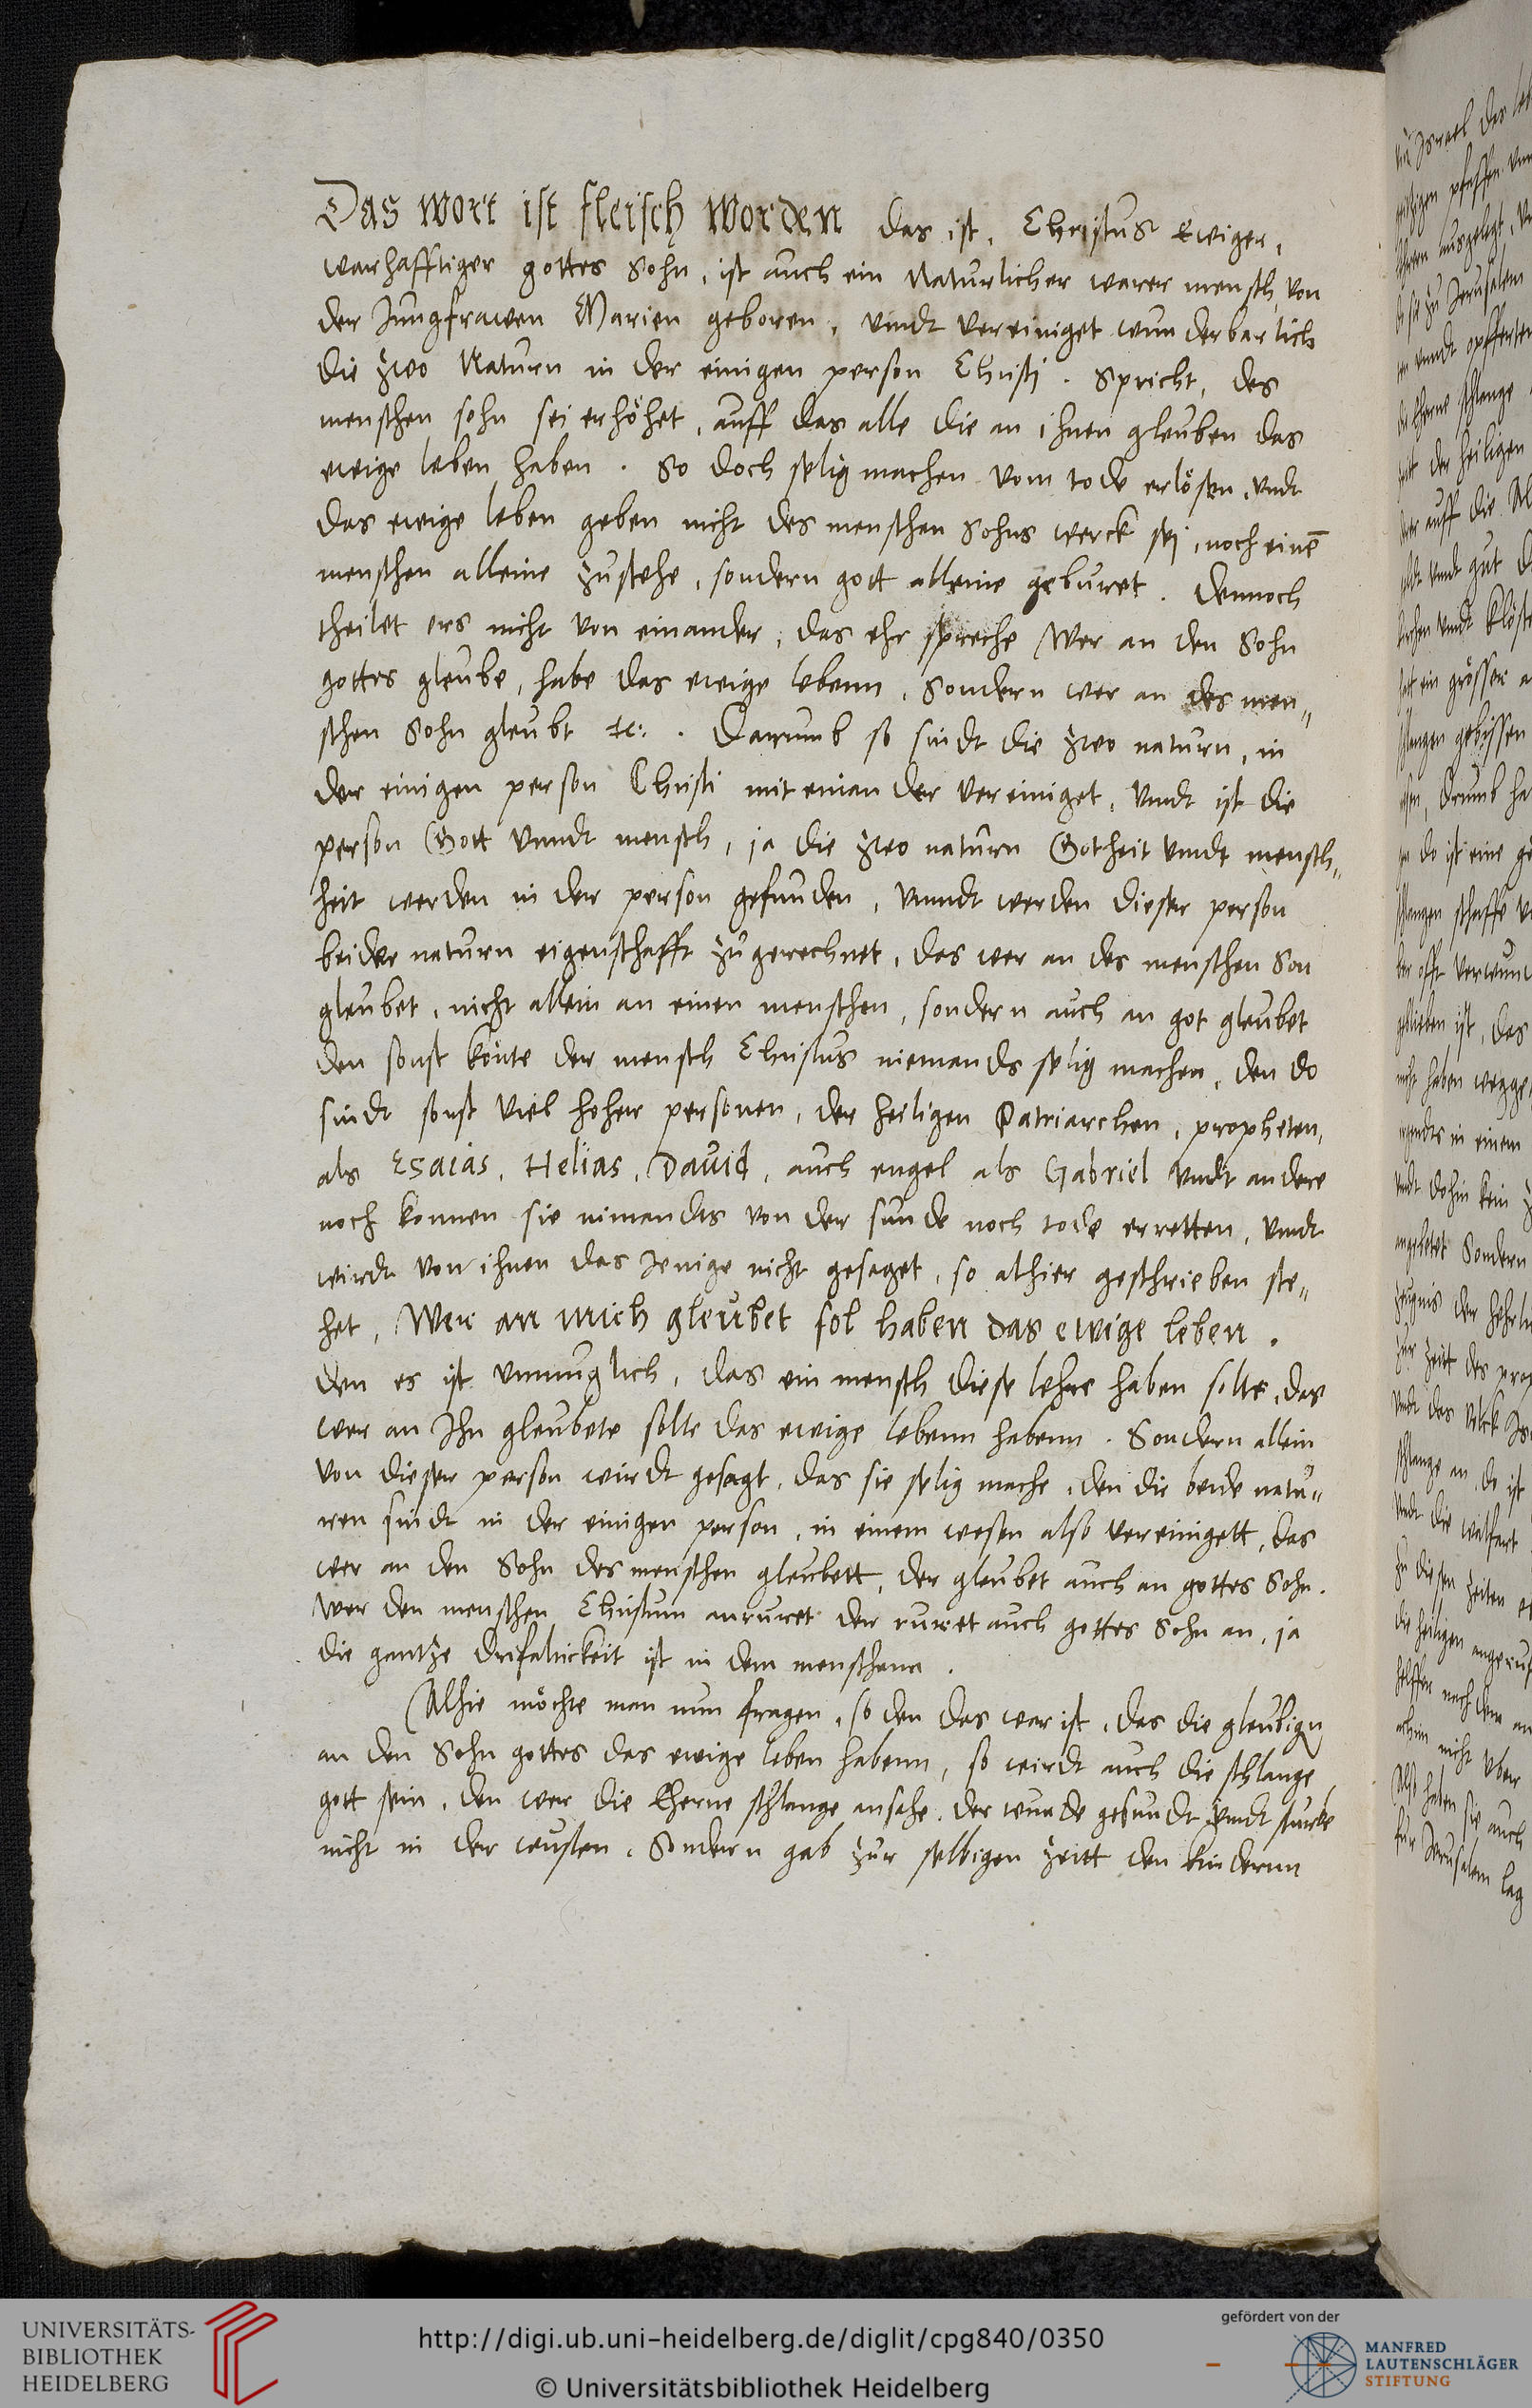 Das wort ist fleisch worden das ist, Christus ewiger,
warhafftiger gottes Sohn, ist auch ein Naturlicher warer mensch, von
der Jungfrawen Marien geboren, vndt vereiniget wunderbarlich
die zwo Naturn in der einigen person Christi. Spricht, des
menschen sohn sei erhöhet, auff das alle die an ihnen gleuben das
ewige leben haben. So doch selig machen vom tode erlösen, vndt
das ewige leben geben nicht des menschen Sohns werck sej, noch einē
menschen alleine zustehe, sondern gott alleine geburet. Dennoch
theilet ers nicht von einander, das ehr spreche Wer an den Sohn
gottes gleube, habe das ewige lebenn, Sondern wer an des men„
schen Sohn gleubt etc. Darumb so sindt die zwo naturn, in
der einigen person Christi mit einander vereiniget, vndt ist die
person Gott vnndt mensch, ja die zwo naturn Gotheit vnndt mensch„
heit werden in der person gefunden, vnndt werden dieser person
beider naturn eigenschafft zugerechnet, das wer an des menschen Son
gleubet, nicht allein an einen menschen, sondern auch an got gleubet
den sonst könte der mensch Christus niemands selig machen, den do
sindt sonst viel hoher personen, der heiligen Patriarchen, propheten,
als Esaias, Helias, Dauid, auch engel als Gabriel vndt andere
noch konnen sie nimandts von der sunde noch tode erretten, vndt
wirdt von ihnen das Jenige nicht gesaget, so alhier geschrieben ste„
het, Wer an mich gleubet sol haben das ewige leben.
den es ist vnmuglich, das ein mensch diese lehre haben solte, das
wer an Ihn gleubete solte das ewige lebenn habenn. Sondern allein
von dieser person wirdt gesagt, das sie selig mache, den die beide natu„
ren sindt in der einigen person, in einem wesen also vereinigett, das
wer an den Sohn des menschen gleubett, der gleubet auch an gottes Sohn.
Wer den menschen Christum anruret der ruret auch gottes Sohn an, ja
die gantze Drifaltickeit ist in dem menschenn.
Alhie möchte man nun fragen, so den das war ist, das die gleubign
an den Sohn gottes das ewige leben habenn, so wirdt auch die schlange
gott sein, den wer die Eherne schlange ansahe, der wurde gesundt vndt sturbe
nicht in der wusten, Sondern gab zur selbigen zeitt den kindernn
UNIVERSITÄTS-
BIBLIOTHEK
HEIDELBERG
http://digi.ub.uni-heidelberg.de/diglit/cpg840/0350
© Universitätsbibliothek Heidelberg
gefördert von der
MANFRED
LAUTENSCHLÄGER
STIFTUNG